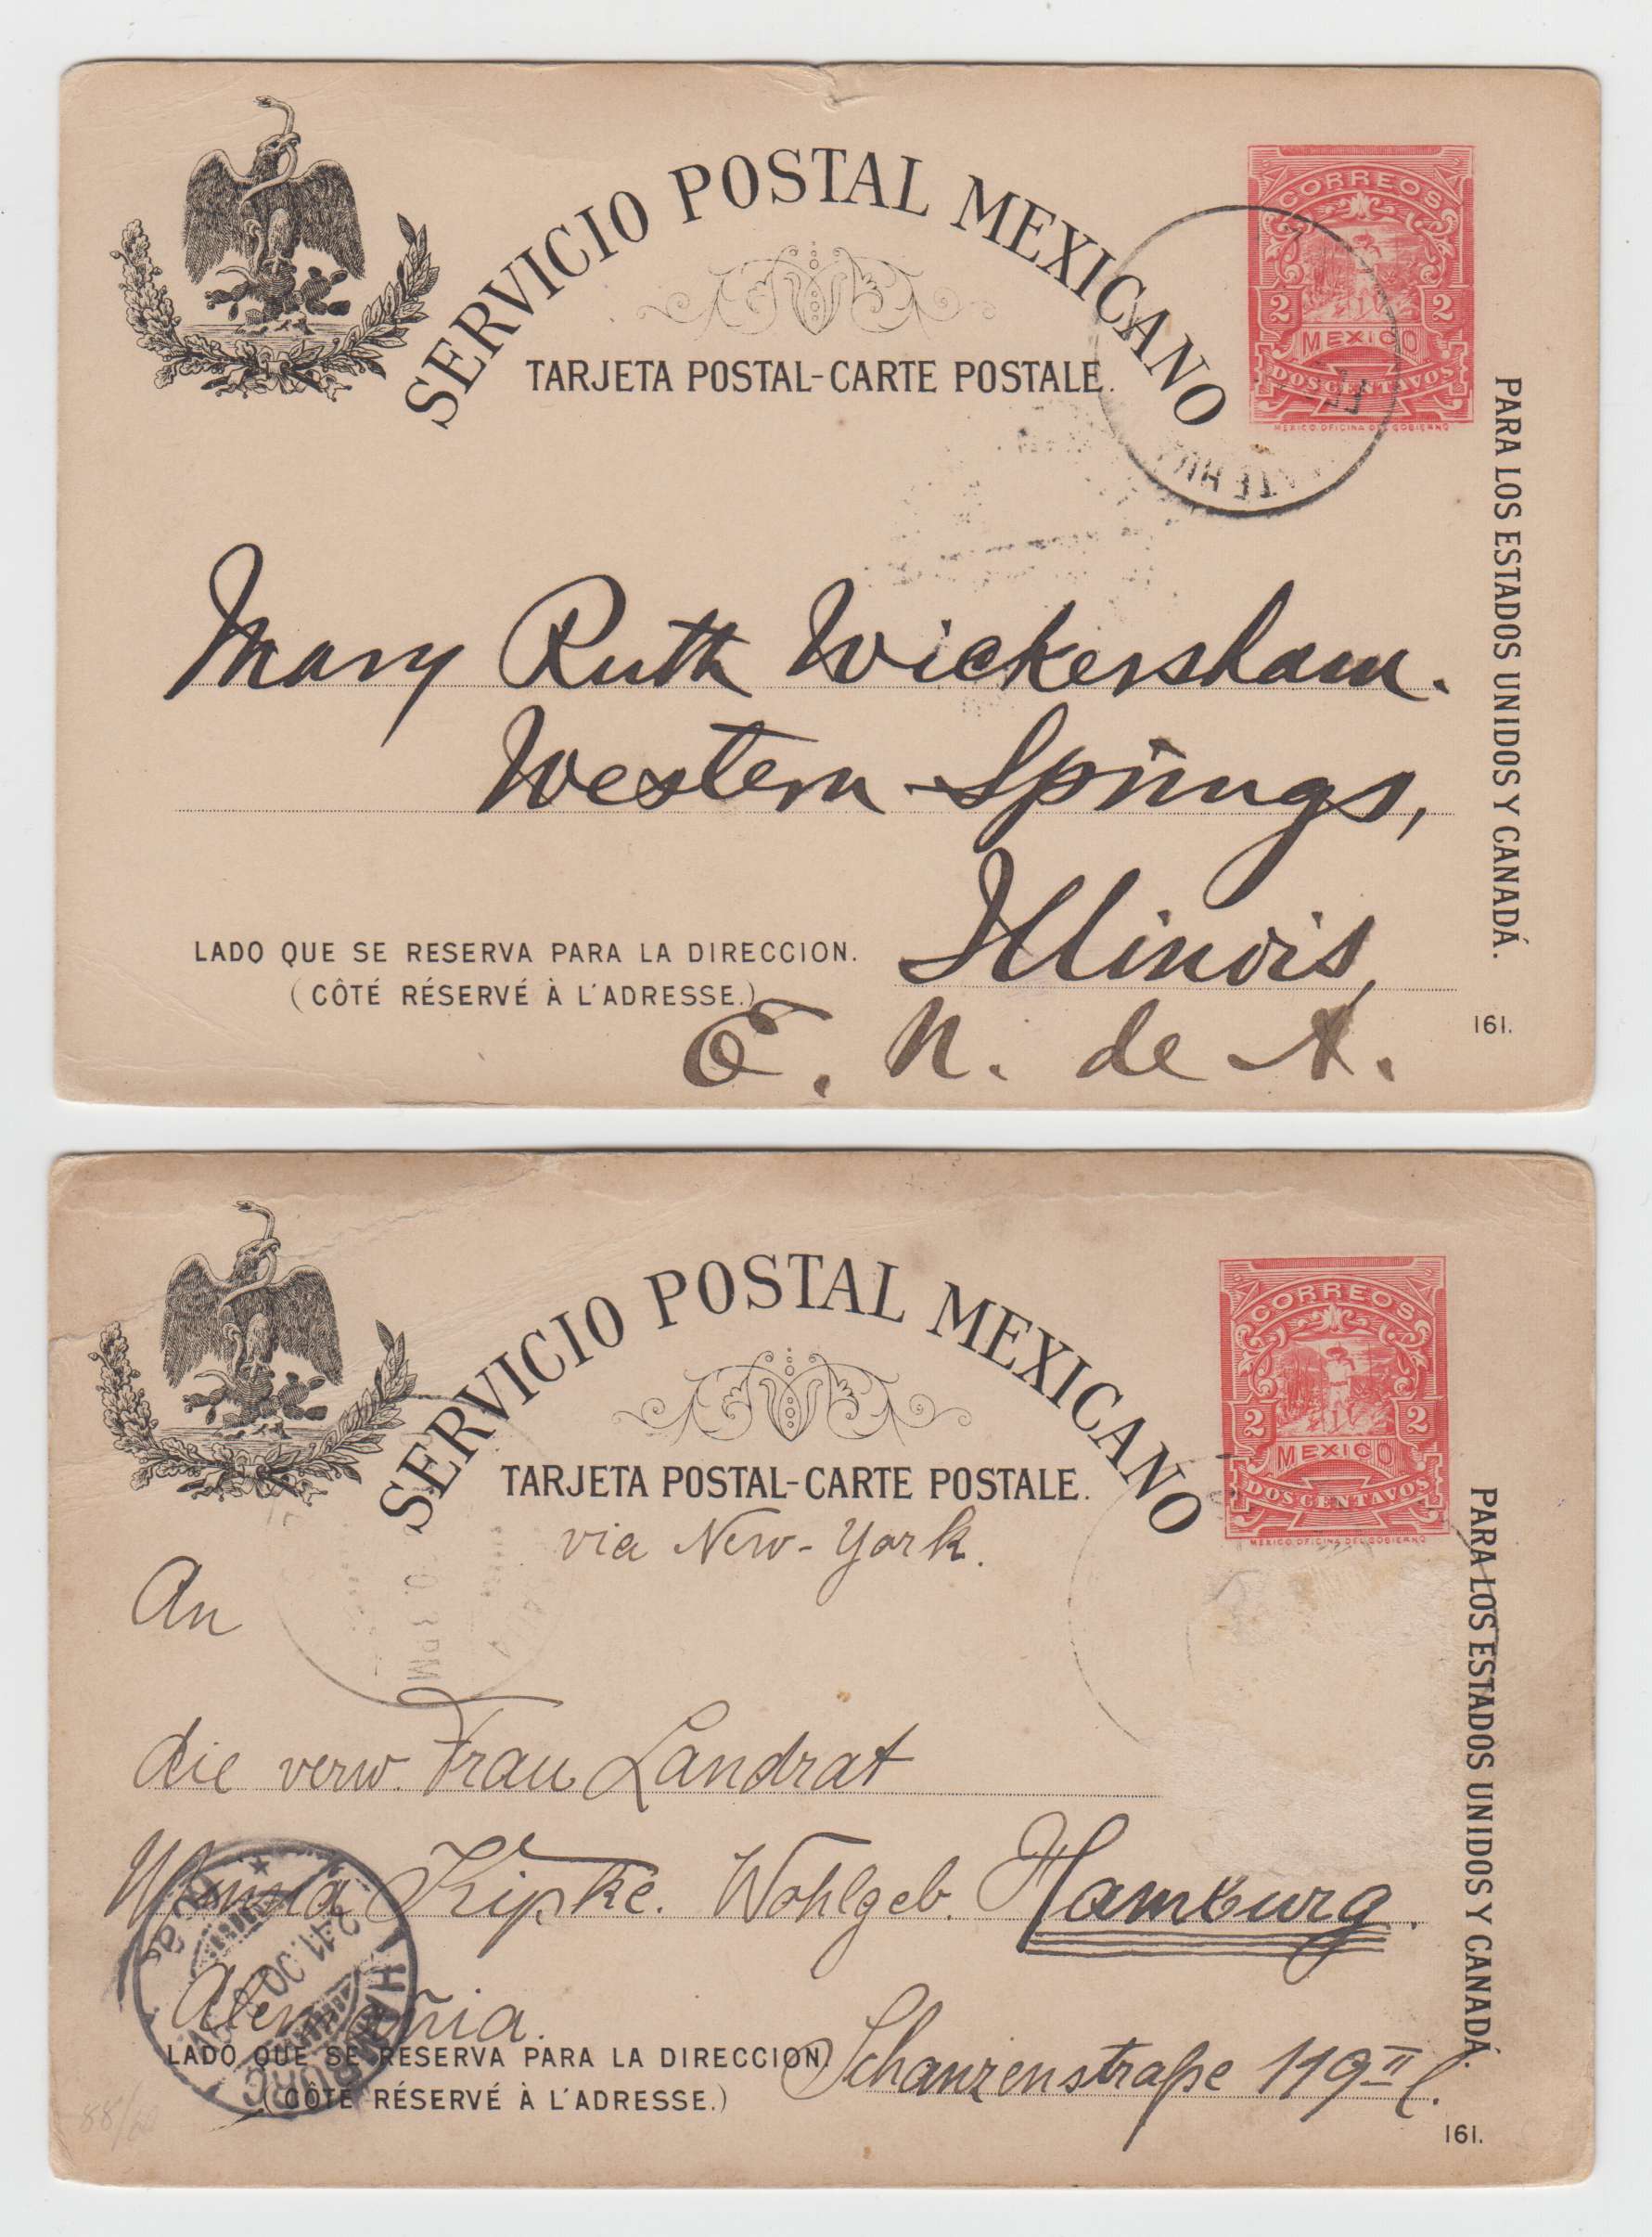 SERVICIO POSTAL MEXICANO
TARJETA POSTAL-CARTE POSTALE.
CORREOS
2 2
MEXICO
DOS CENTAVOS
MEXICO. OFICINA DEL GOBIERNO
PARA LOS ESTADOS UNIDOS Y CANADÁ.
Mary Ruth Wickersham.
Western Springs,
Illinois,
E. U. de A.
LADO QUE SE RESERVA PARA LA DIRECCION.
(CÔTÉ RÉSERVÉ À L'ADRESSE.)
161.
SERVICIO POSTAL MEXICANO
TARJETA POSTAL-CARTE POSTALE.
CORREOS
2 2
MEXICO
DOS CENTAVOS
MEXICO. OFICINA DEL GOBIERNO
PARA LOS ESTADOS UNIDOS Y CANADÁ.
via New-York.
An
die verw. Frau Landrat
Kipke. Wohlgeb. Hamburg.
Alemania.
Schanzenstraße 119 II l.
LADO QUE SE RESERVA PARA LA DIRECCION.
(CÔTÉ RÉSERVÉ À L'ADRESSE.)
161.
HAMBURG
88/